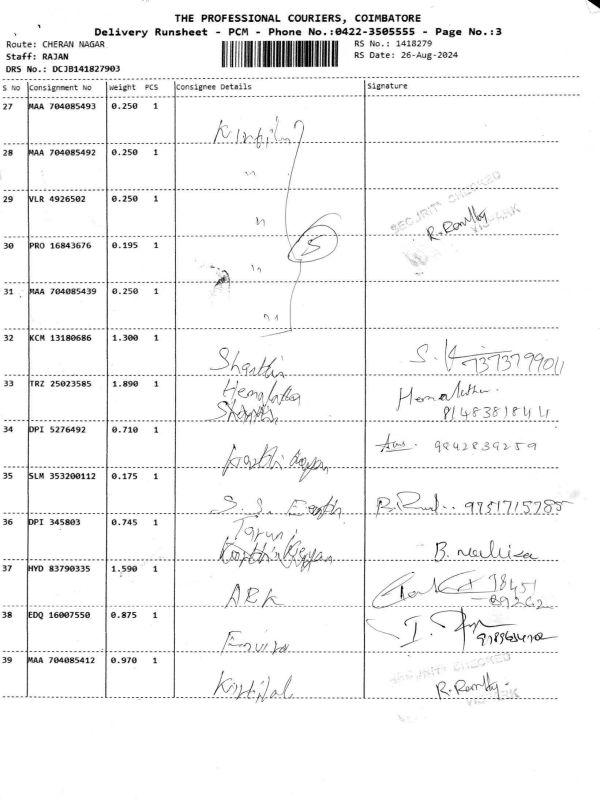 THE PROFESSIONAL COURIERS, COIMBATORE
Delivery Runsheet - PCM - Phone No.:0422-3505555 - Page No.:3
Route: CHERAN NAGAR RS No.: 1418279
Staff: RAJAN RS Date: 26-Aug-2024
DRS No.: DCJB141827903
S No Consignment No Weight PCS Consignee Details Signature
27 MAA 704085493 0.250 1
28 MAA 704085492 0.250 1 "
29 VLR 4926502 0.250 1 "
SECURITY CHECKED
5
30 PRO 16843676 0.195 1 "
31 MAA 704085439 0.250 1 "
32 KCM 13180686 1.300 1
7373799011
33 TRZ 25023585 1.890 1 Hemalatha Hemalatha
8148381841
34 DPI 5276492 0.710 1 9842839259
35 SLM 353200112 0.175 1 9751715785
36 DPI 345803 0.745 1 Taruni
37 HYD 83790335 1.590 1 ARK
38 EDQ 16007550 0.875 1
39 MAA 704085412 0.970 1
SECURITY CHECKED